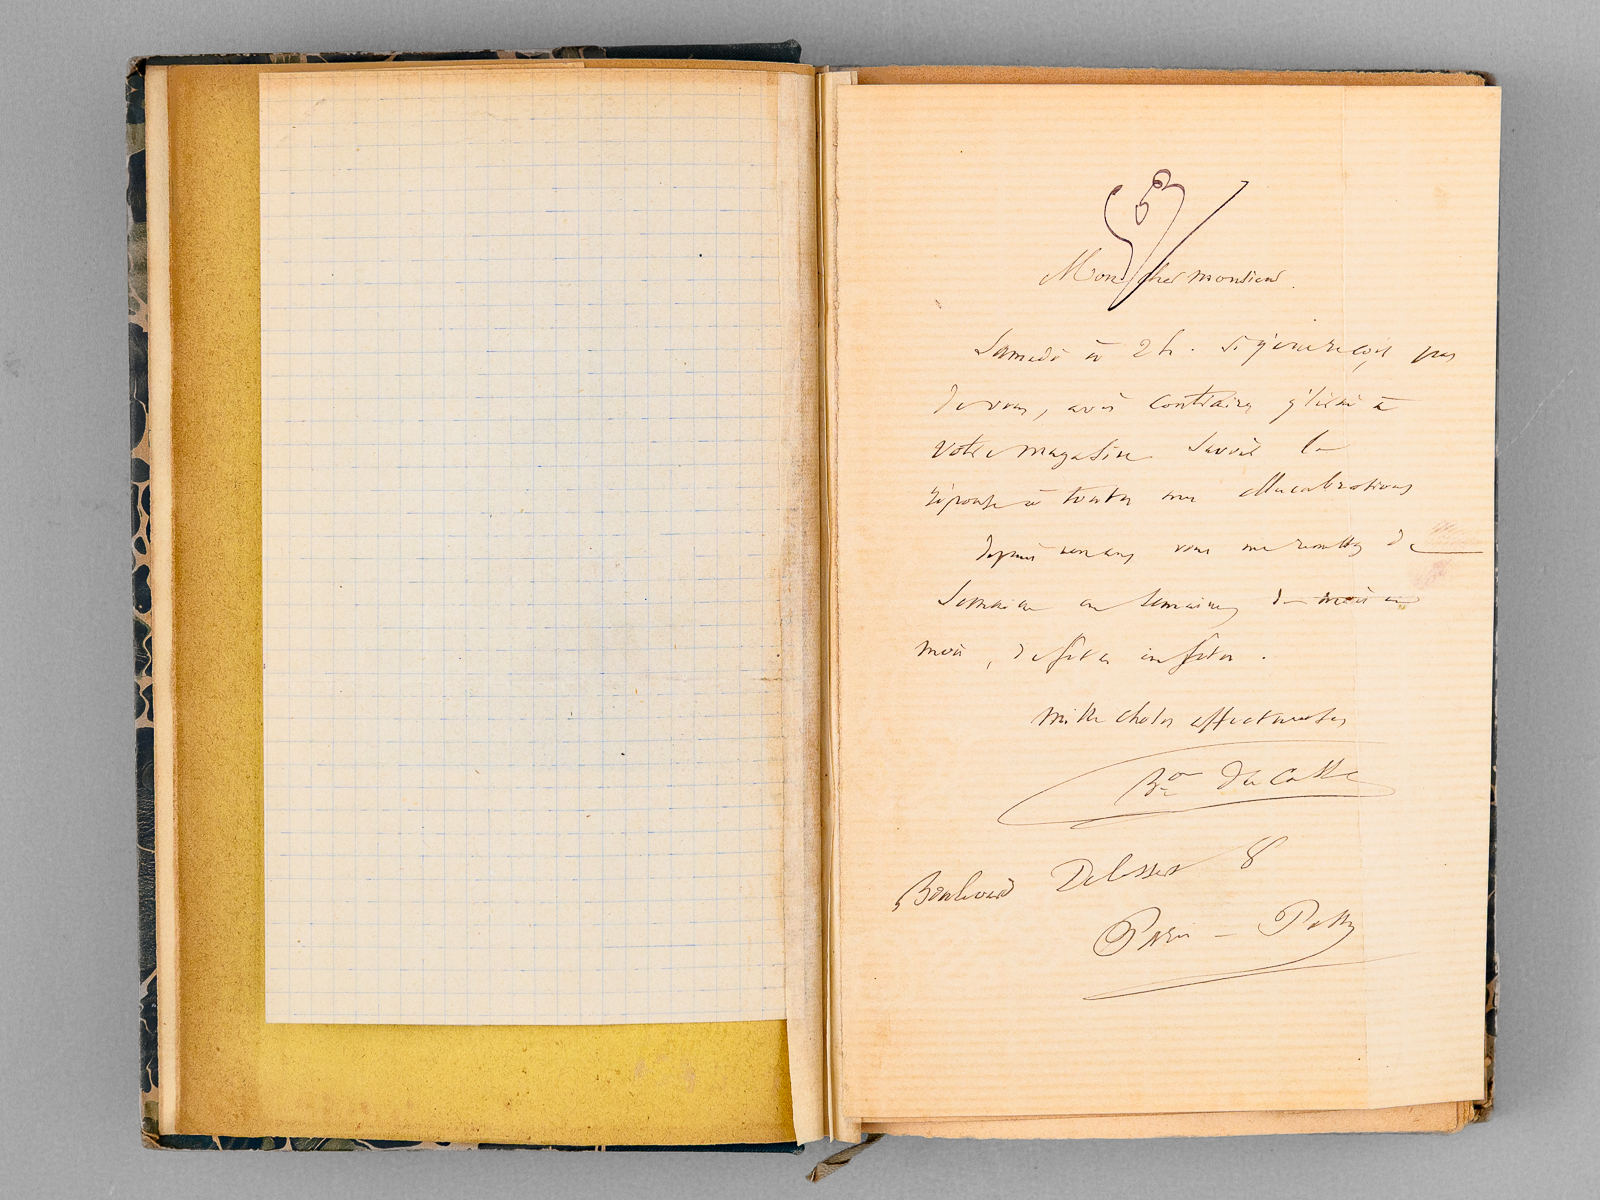 Mon cher monsieur.
Samedi à 2 h. Si je ne reçois pas
de vous, avis contraire j'irai à
votre magasin savoir la
réponse à toutes mes élucubrations
depuis vous me remettez de
semaine en semaine, de mois en
mois, de fêtes en fêtes.
mille choses affectueuses
Bon Du Casse
Boulevard Delessert 8
Paris – Passy